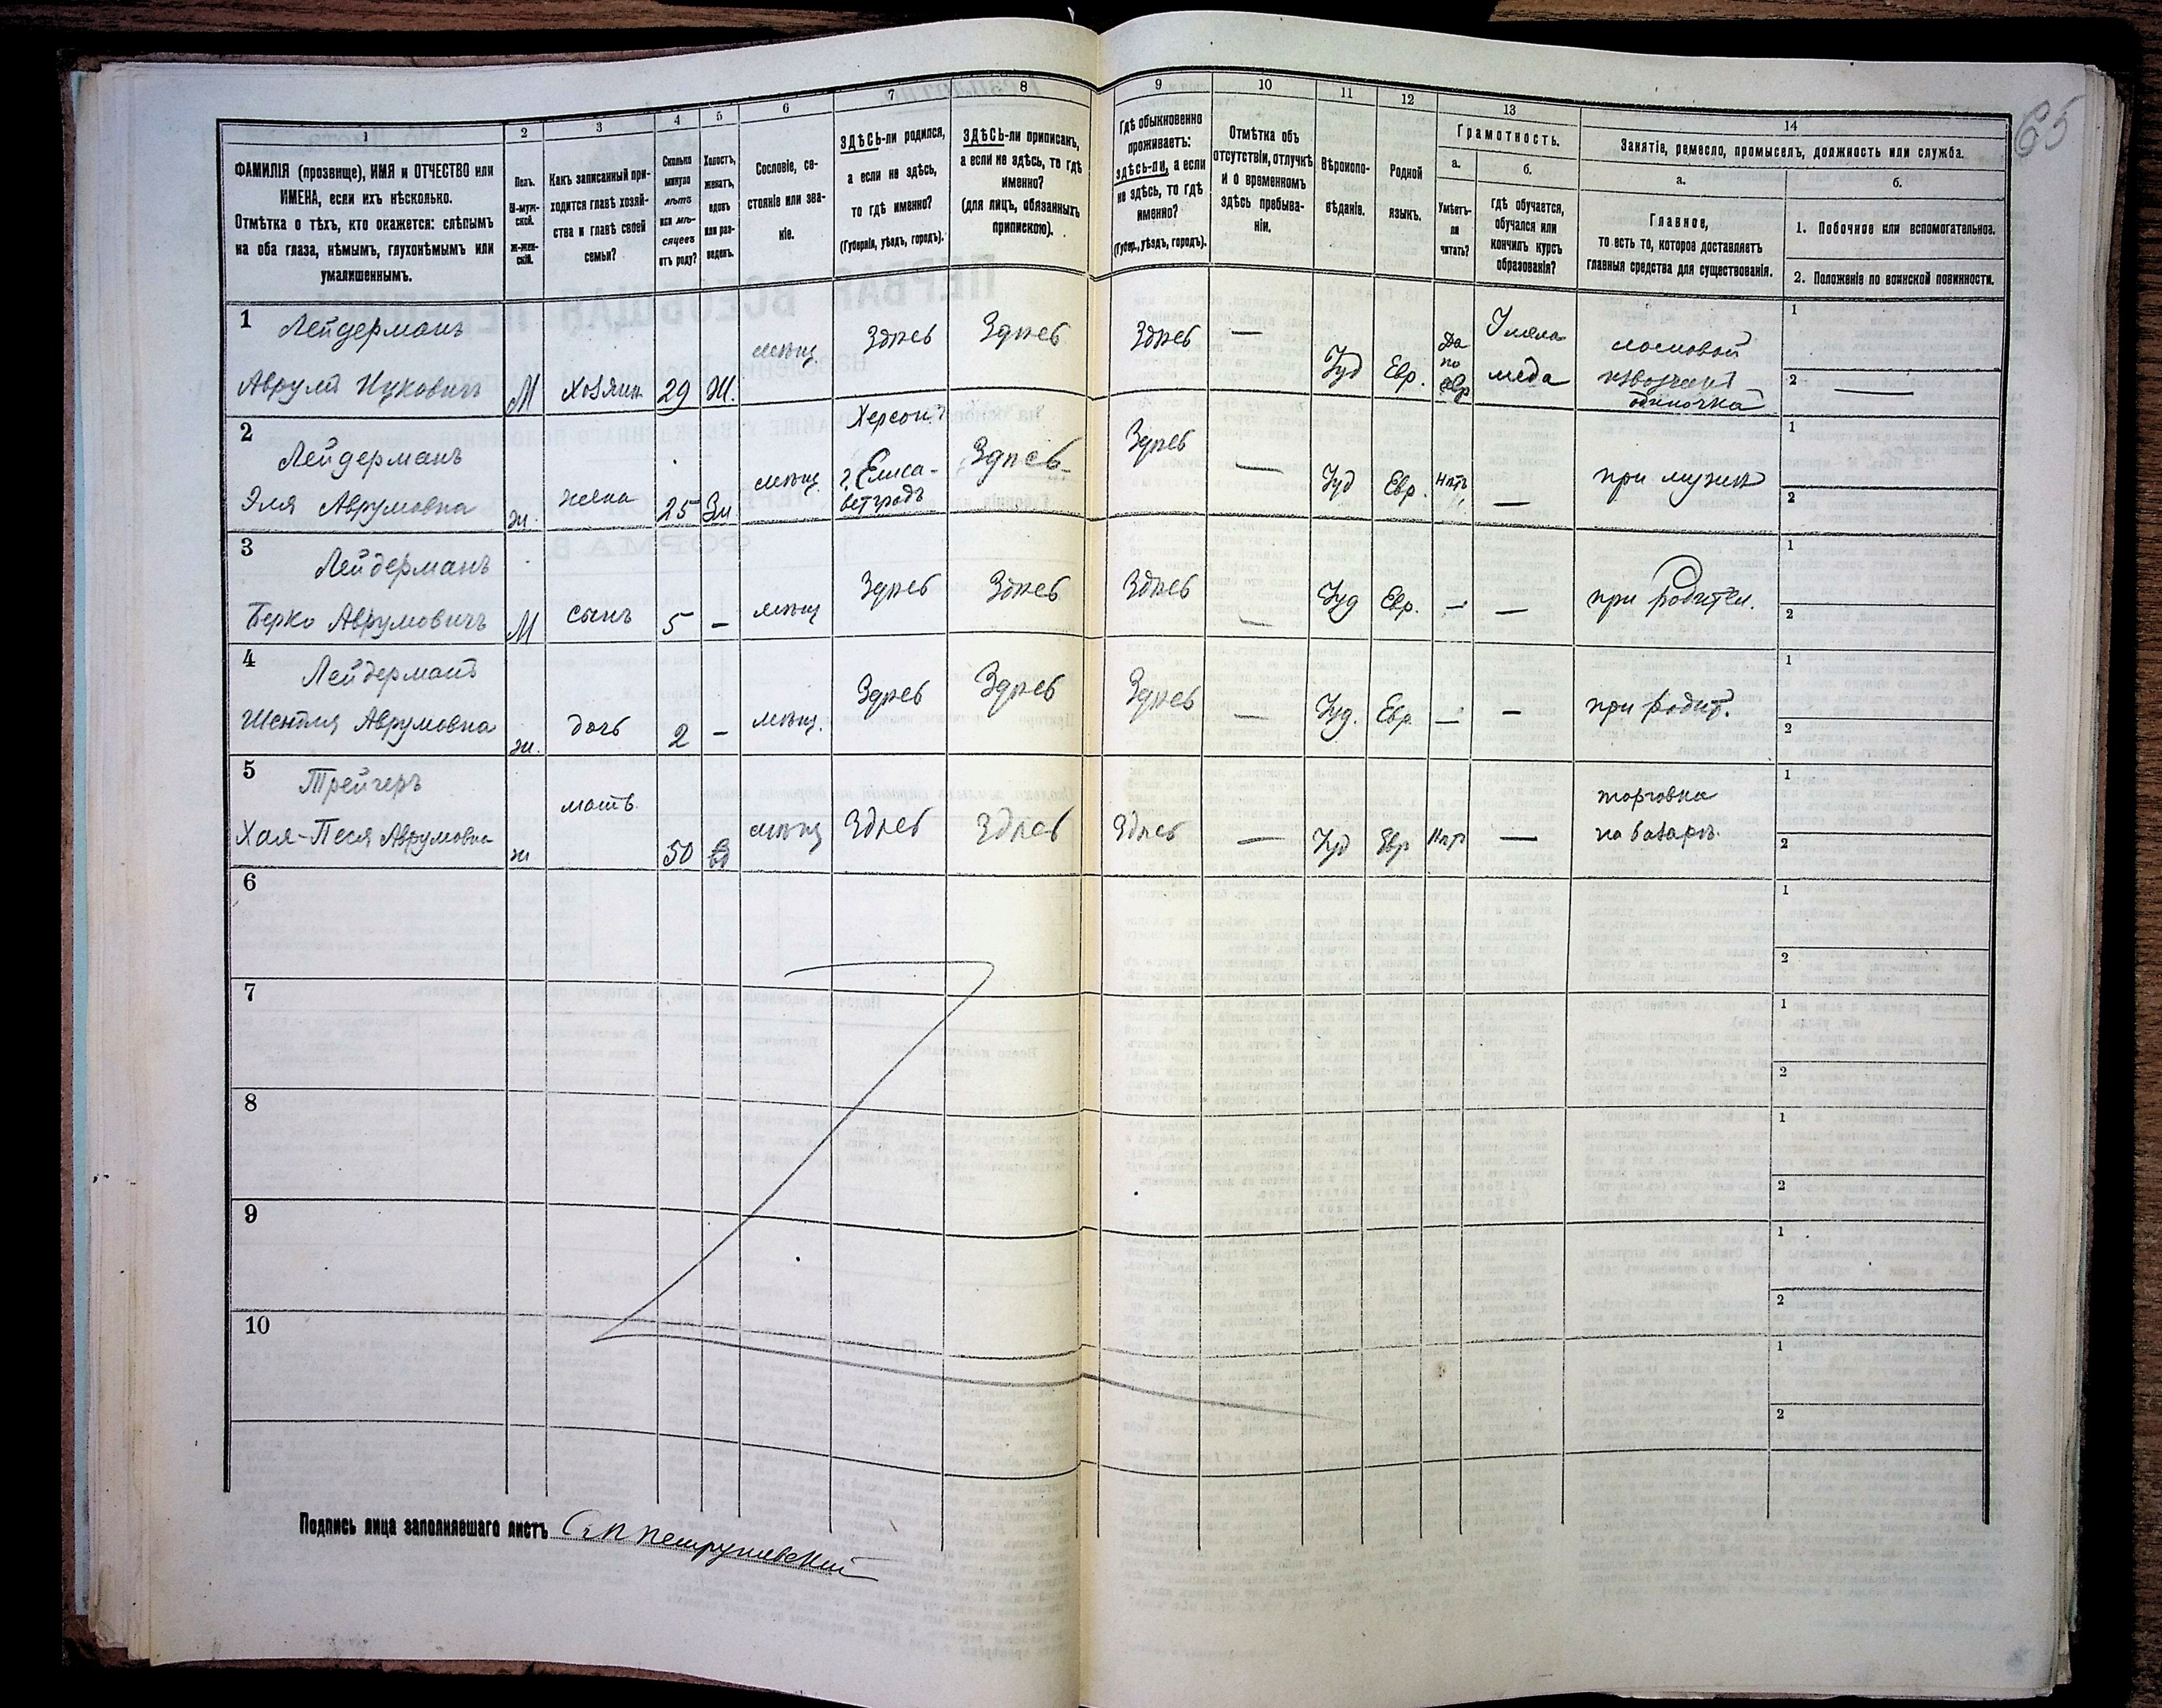 65
1
ФАМИЛІЯ (прозвище), ИМЯ и ОТЧЕСТВО или
ИМЕНА, если ихъ нѣсколько.
Отмѣтка о тѣхъ, кто окажется: слѣпымъ
на оба глаза, нѣмымъ, глухонѣмымъ или
умалишеннымъ.
2
Полъ.
М-муж-
ской.
Ж-жен-
скій.
3
Какъ записанный при-
ходится главѣ хозяй-
ства и главѣ своей
семьи?
4
Сколько
минуло
лѣтъ
или мѣ-
сяцевъ
отъ роду?
5
Холостъ,
женатъ,
вдовъ
или раз-
веденъ.
6
Сословіе, со-
стояніе или зва-
ніе.
7
ЗДѢСЬ-ли родился,
а если не здѣсь,
то гдѣ именно?
(Губернія, уѣздъ, городъ).
8
ЗДѢСЬ-ли приписанъ,
а если не здѣсь, то гдѣ
именно?
(для лицъ, обязанныхъ
припискою).
9
Гдѣ обыкновенно
проживаетъ:
здѣсь-ли, а если
не здѣсь, то гдѣ
именно?
(Губер., уѣздъ, городъ).
10
Отмѣтка объ
отсутствіи, отлучкѣ
и о временномъ
здѣсь пребыва-
ніи.
11
Вѣроиспо-
вѣданіе.
12
Родной
языкъ.
13
Грамотность.
а.
Умѣетъ-
ли
читать?
б.
гдѣ обучается,
обучался или
кончилъ курсъ
образованія?
14
Занятіе, ремесло, промыселъ, должность или служба.
а.
Главное,
то есть то, которое доставляетъ
главныя средства для существованія.
б.
1. Побочное или вспомогательное.
2. Положеніе по воинской повинности.
1
Лейдерманъ
Аврумъ Ицковичъ
М
Хозяин
29
Ж.
мѣщ
Здѣсь
Здѣсь
Здѣсь
—
Іуд
Евр.
Да
по
евр
У мела
меда
ломовой
извозчикъ
одиночка
1
2 —
2
Лейдерманъ
Эля Аврумовна
ж.
жена
25
Зм
мѣщ.
Херсон.
г. Елиса-
ветградъ
Здѣсь
Здѣсь
—
Іуд
Евр.
Нѣтъ
—
при мужѣ
1
2
3
Лейдерманъ
Берко Аврумовичъ
М
сынъ
5
–
мѣщ
Здѣсь
Здѣсь
Здѣсь
—
Іуд
Евр.
—
—
при родител.
1
2
4
Лейдерманъ
Шентля Аврумовна
ж.
дочь
2
–
мѣщ.
Здѣсь
Здѣсь
Здѣсь
—
Іуд.
Евр.
—
—
при родит.
1
2
5
Трейгеръ
Хая-Песя Аврумовна
ж
мать
50
вд
мѣщ
Здѣсь
Здѣсь
Здѣсь
—
Іуд
Евр
Нѣт
—
торговка
на базарѣ
1
2
6
1
2
7
1
2
8
1
2
9
1
2
10
1
2
Подпись лица заполнявшаго листъ